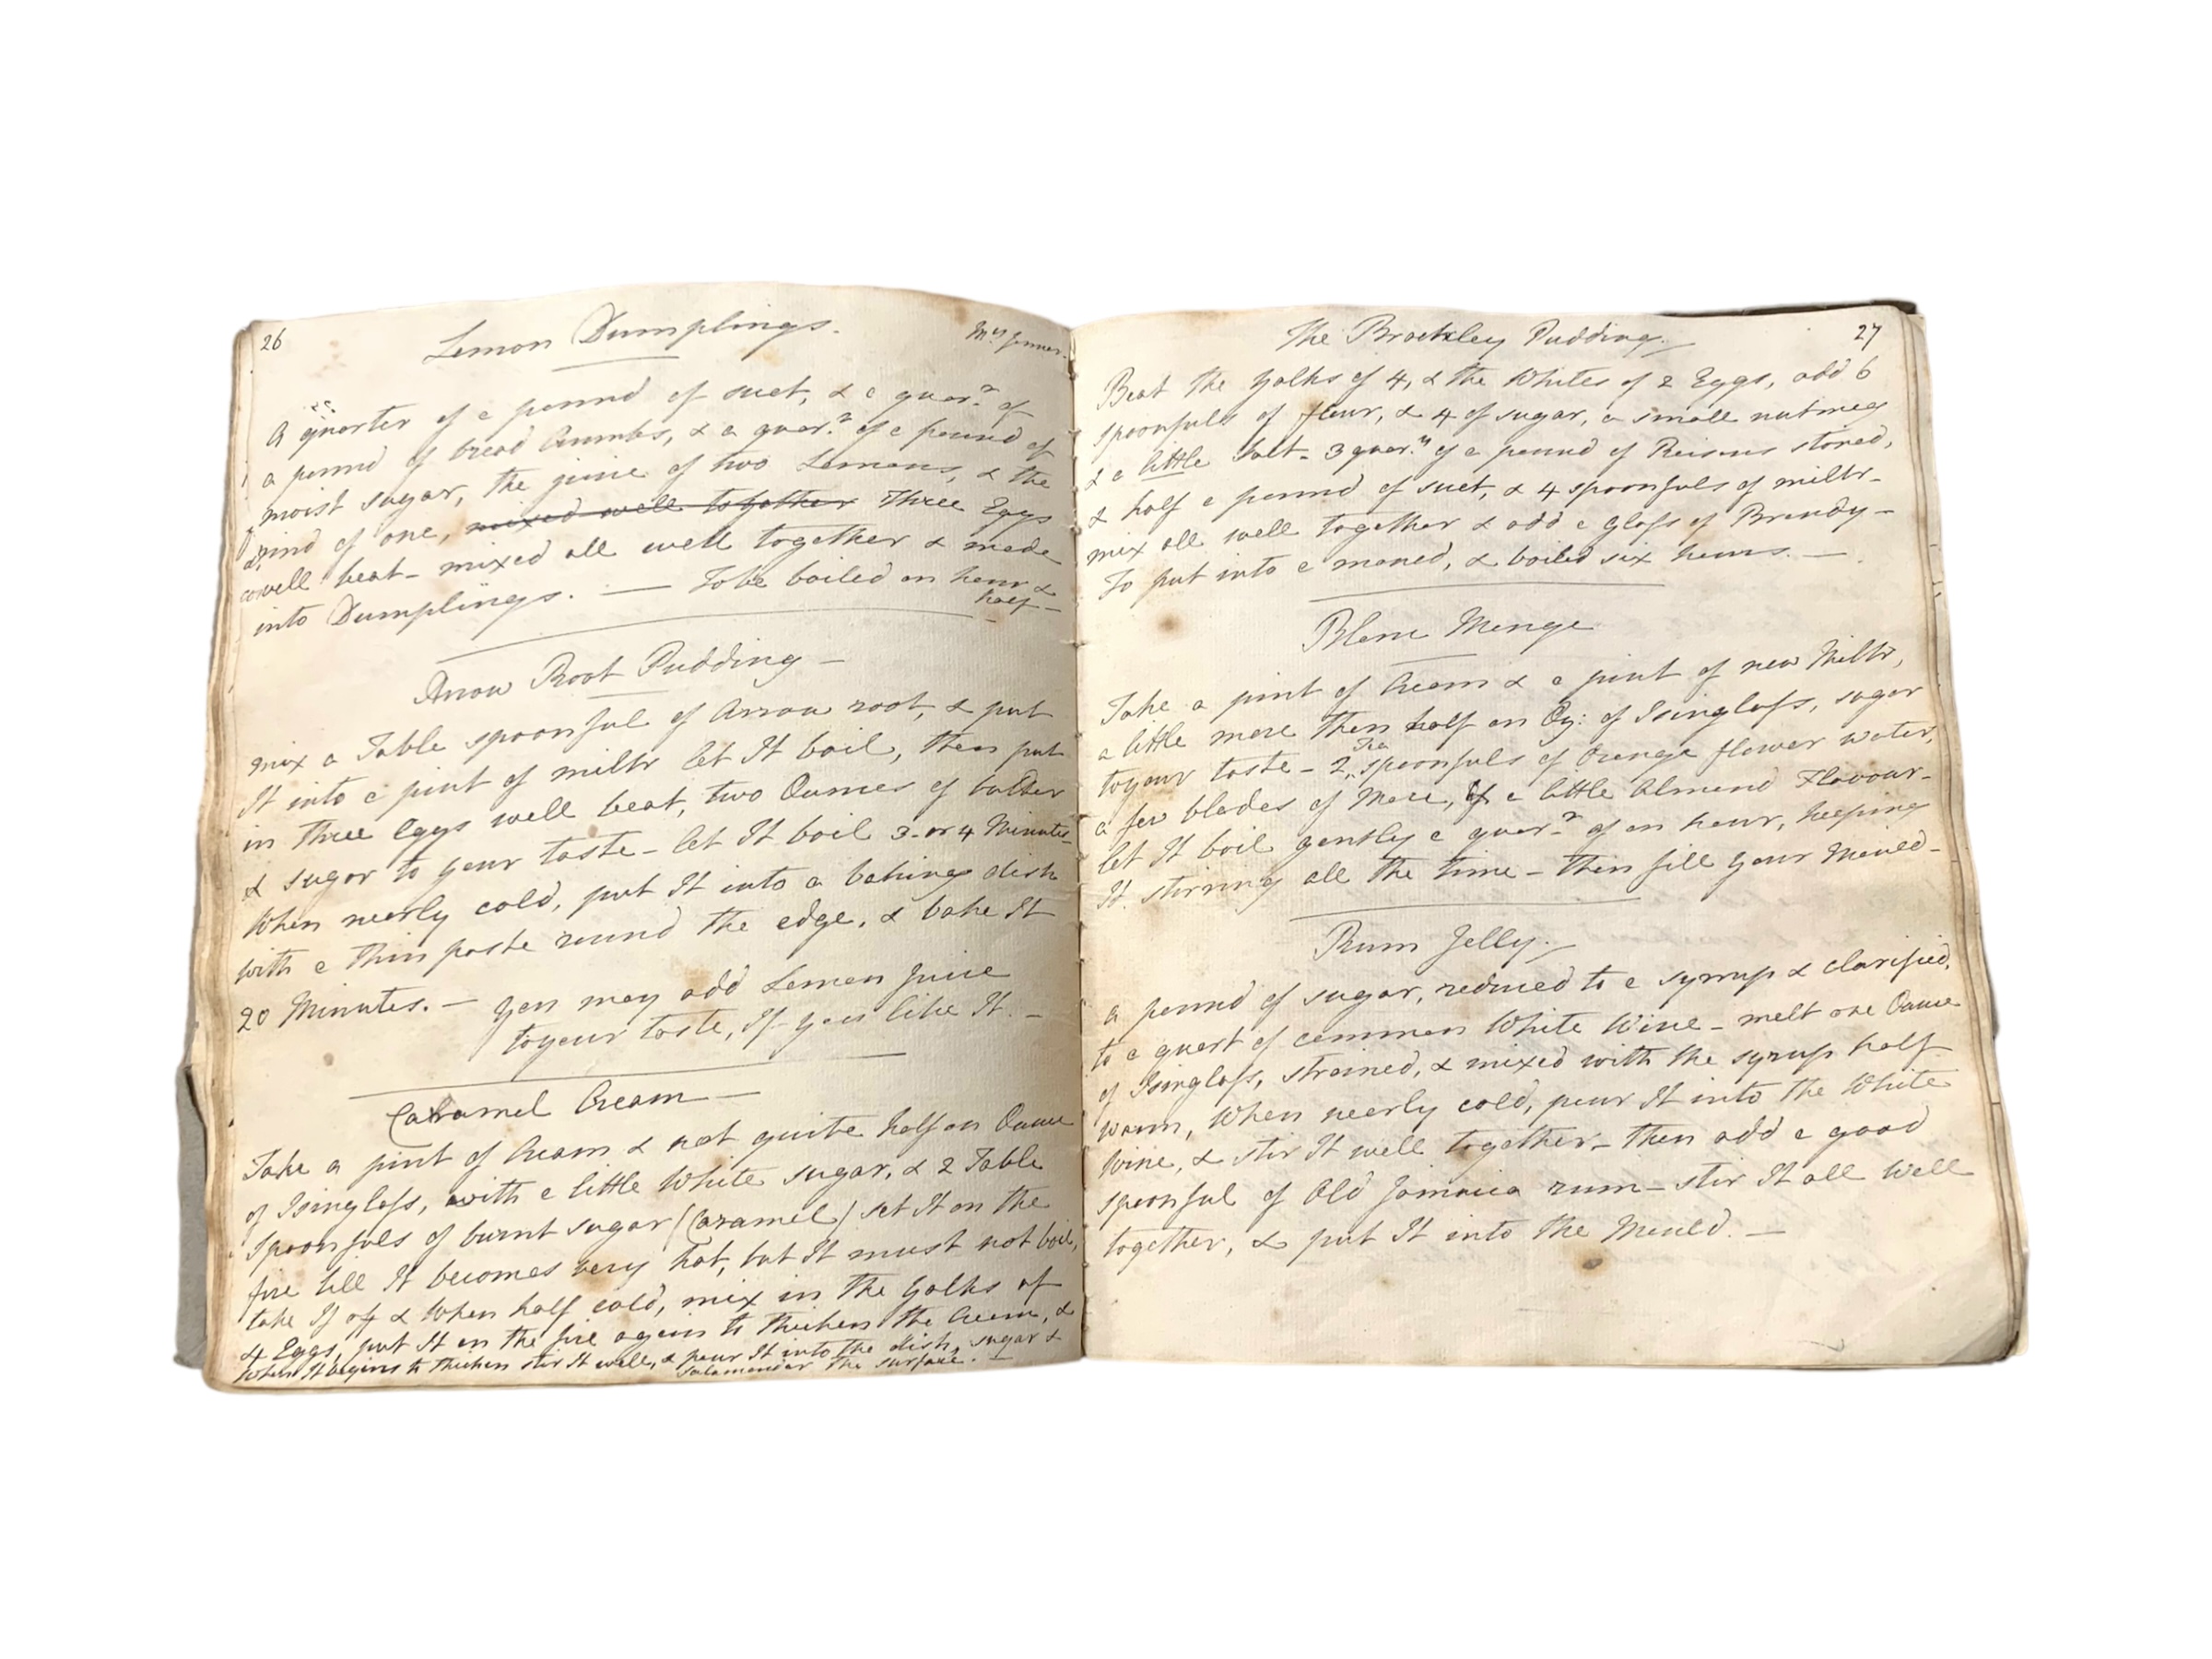 26
Lemon Dumplings.
Mrs Jenner.
A quarter of a pound of suet, & a quarr of
a pound of bread Crumbs, & a quarr of a pound of
moist sugar, the juice of two Lemons, & the
rind of one, mixed well together Three Eggs
well beat - mixed all well together & made
into Dumplings. — To be boiled an hour &
half —
Arrow Root Pudding —
mix a Table spoonful of Arrow root, & put
It into a pint of milk let It boil, then put
in three Eggs well beat, two Ounces of butter
& sugar to your taste - let It boil 3 - or 4 Minutes
When nearly cold, put It into a baking dish
with a thin paste round the edge, & bake It
20 Minutes. — You may add Lemon Juice
to your taste, If you like It. —
Caramel Cream —
Take a pint of Cream & not quite half an Ounce
of Isinglass, with a little White sugar, & 2 Table
spoonfuls of burnt sugar (Caramel) set It on the
fire till It becomes very hot, but It must not boil,
take If off & When half cold, mix in the Yolks of
4 Eggs, put It on the fire again to thicken the Cream, &
When It begins to thicken stir It well, & pour It into the dish, sugar &
Salamander the surface. —
The Brockley Pudding.
27
Beat the Yolks of 4, & the Whites of 2 Eggs, add 6
spoonfuls of flour, & 4 of sugar, a small nutmeg
& a little Salt - 3 quars of a pound of Raisins stoned,
& half a pound of suet, & 4 spoonfuls of milk -
mix all well together & add a Glass of Brandy -
To put into a mould, & boiled six hours. —
Blanc Mange
Take a pint of Cream & a pint of new Milk,
a little more than half an Oz: of Isinglass, sugar
to your taste - 2 Tea spoonfuls of Orange flower water,
a few blades of Mace, & a little Almond Flavour -
let It boil gently a quarr of an hour, keeping
It stirring all the time - then fill your Mould -
Rum Jelly.
a pound of sugar, reduced to a syrrup & clarified,
to a quart of common White Wine - melt one Ounce
of Isinglass, strained, & mixed with the syrup half
warm, When nearly cold, pour It into the White
Wine, & stir It well together - then add a good
spoonful of Old Jamaica rum - stir It all well
together, & put It into the Mould. —